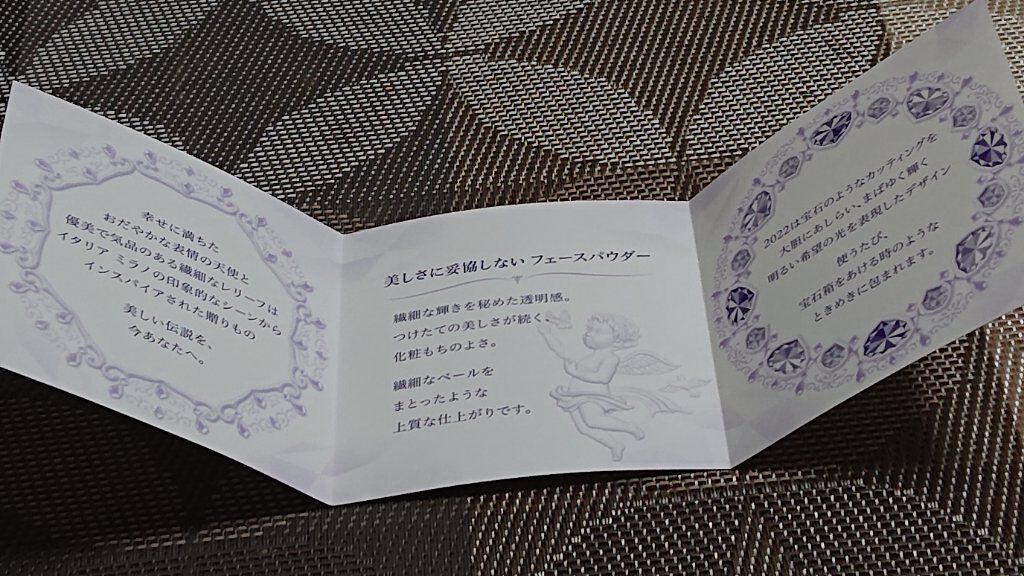 幸せに満ちた
おだやかな表情の天使と
優美で気品のある繊細なレリーフは
イタリア ミラノの印象的なシーンから
インスパイアされた贈りもの
美しい伝説を、
今あなたへ。
美しさに妥協しない フェースパウダー
繊細な輝きを秘めた透明感。
つけたての美しさが続く、
化粧もちのよさ。
繊細なベールを
まとったような
上質な仕上がりです。
2022は宝石のようなカッティングを
大胆にあしらい、まばゆく輝く
明るい希望の光を表現したデザイン
使うたび、
宝石箱をあける時のような
ときめきに包まれます。